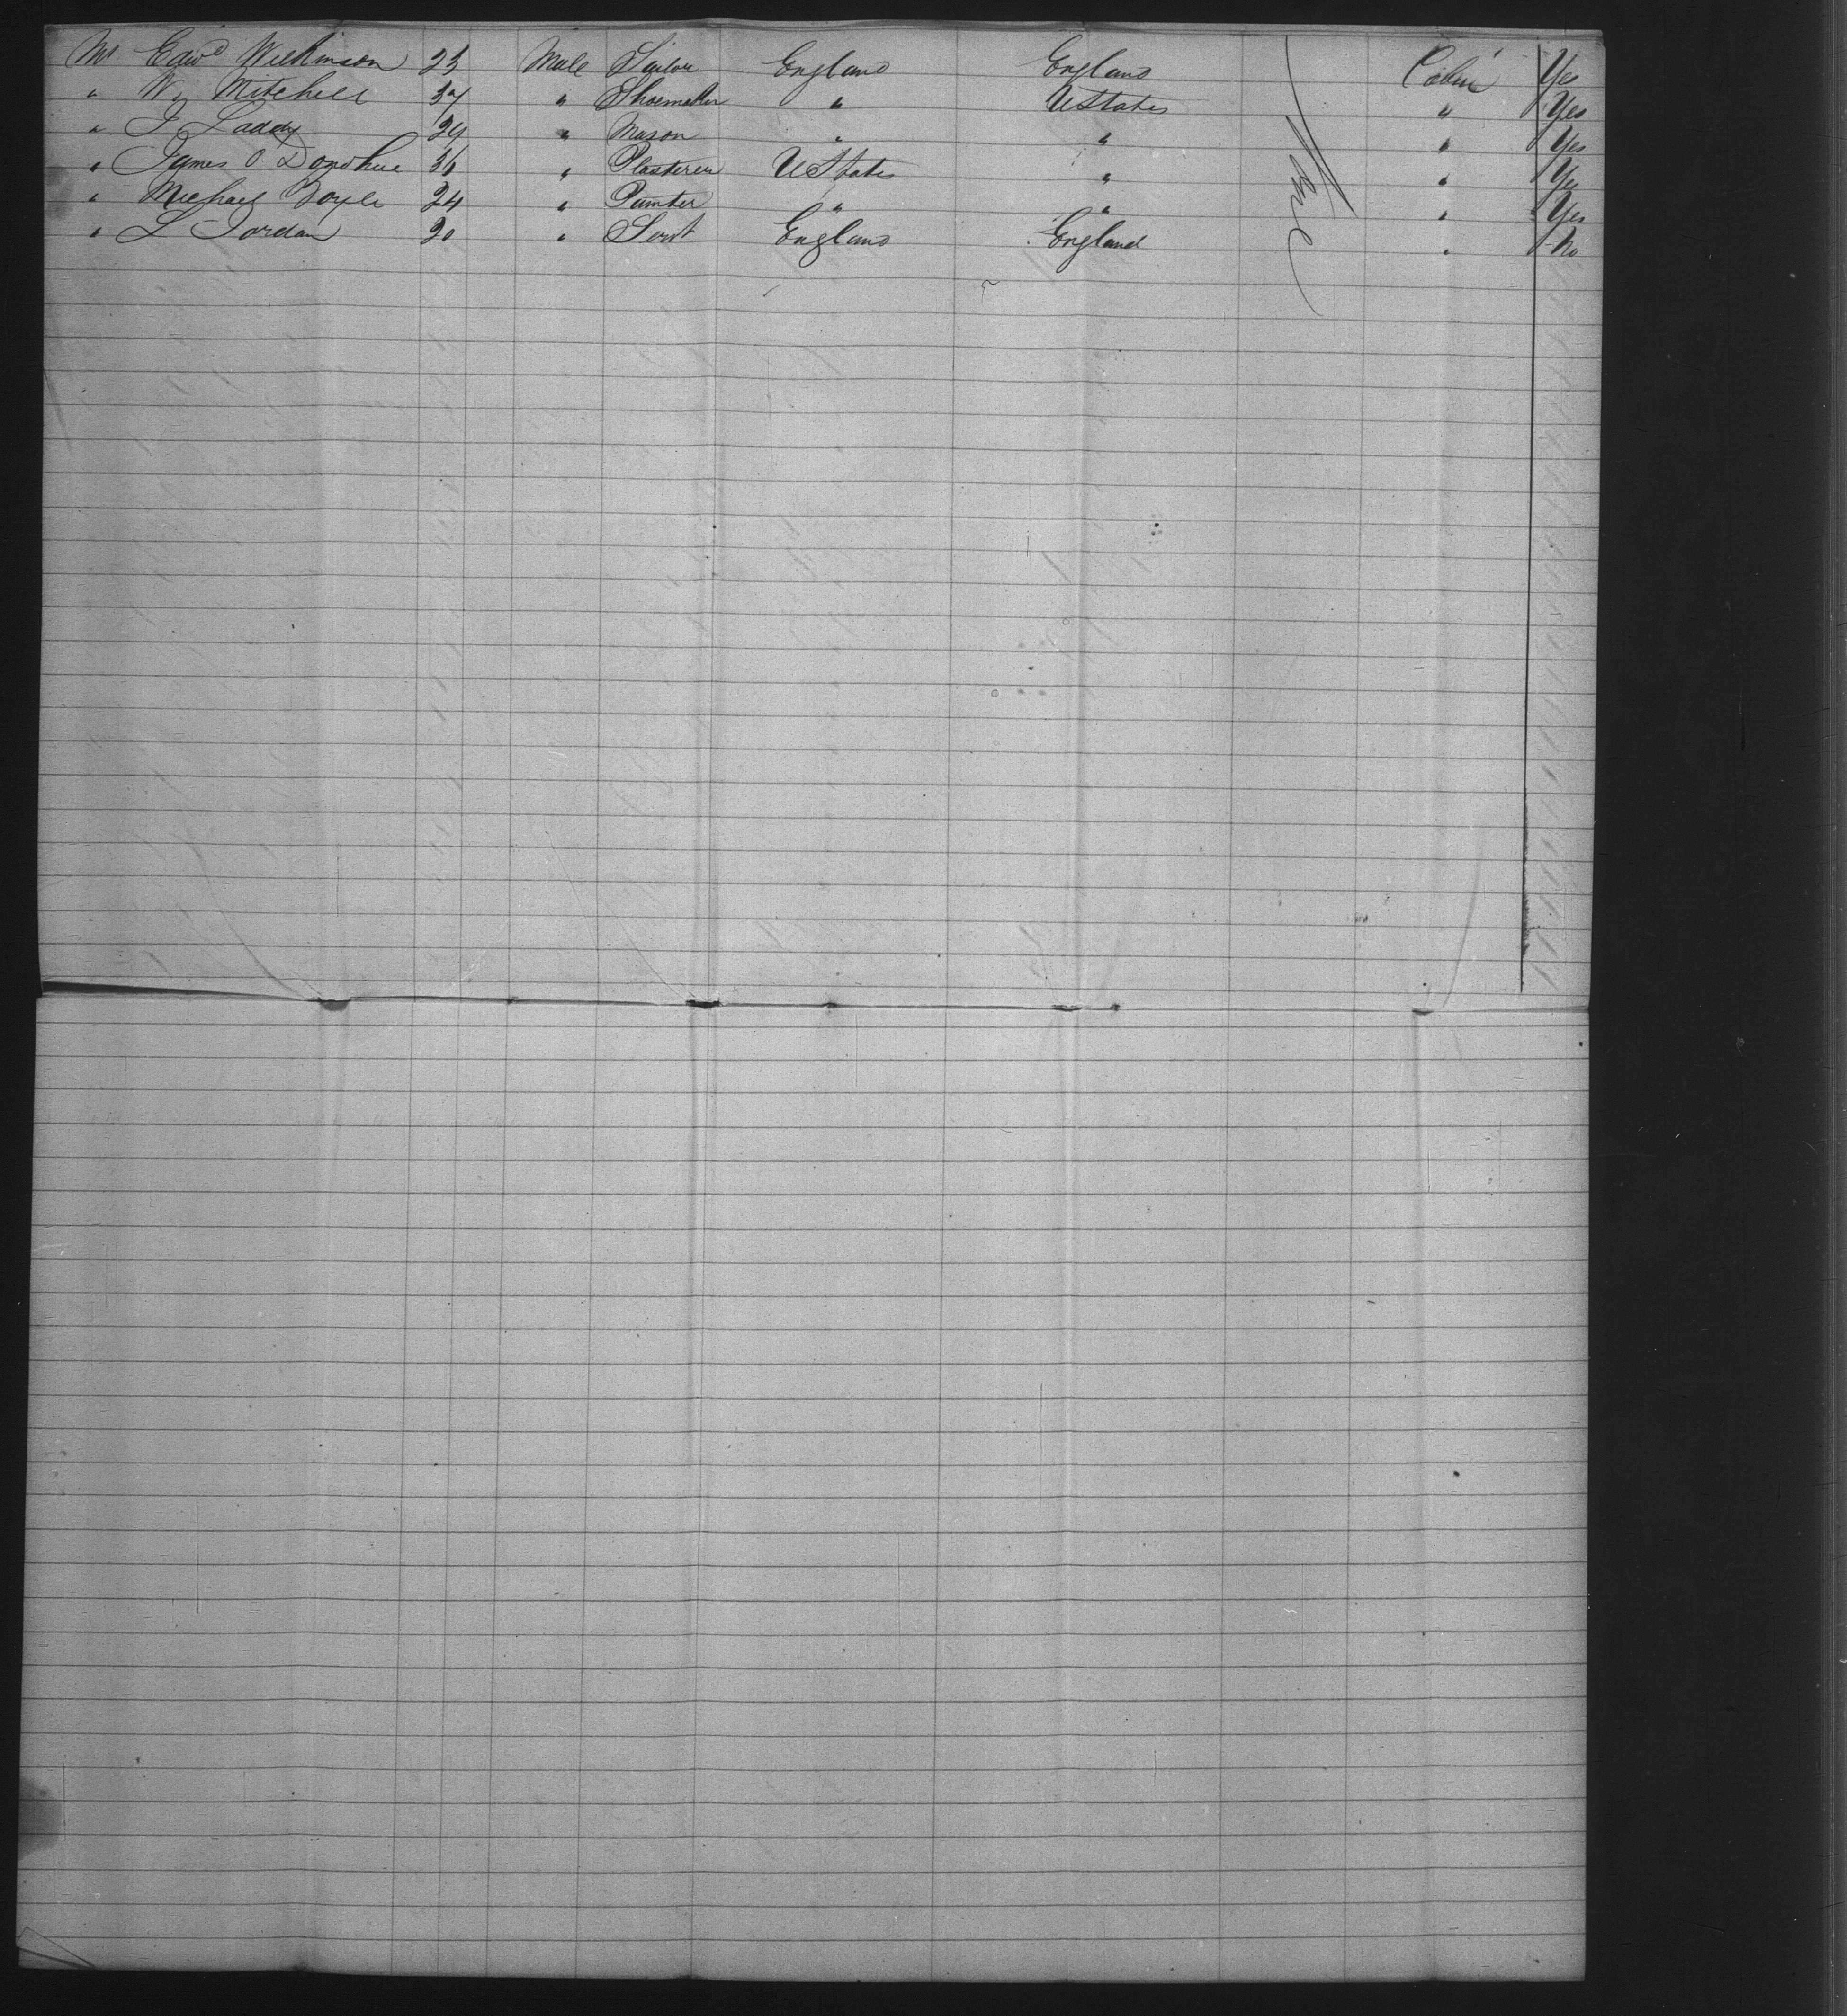 Mr Edwd Wilkinson 23 Male Tailor England England Cabin Yes
" W. Mitchell 37 " Shoemaker " U States " Yes
" J Laddy 24 " Mason " " " Yes
" James O Donohue 36 " Plasterer U States " " Yes
" Michael Doyle 24 " Painter " " " Yes
" L Jordan 20 " Servt England England " No
None